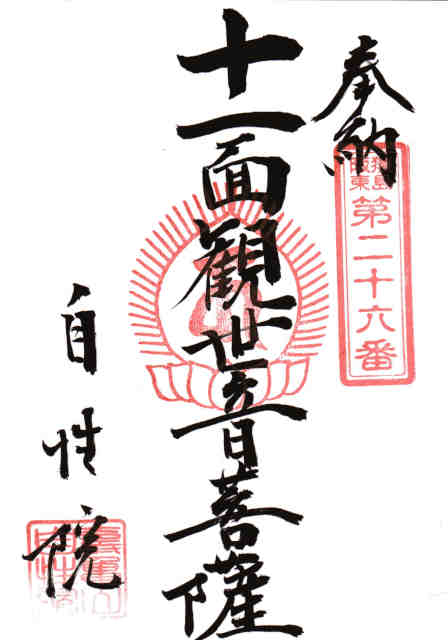 奉納
猿島
阪東
第二十六番
十一面観世音菩薩
自性院